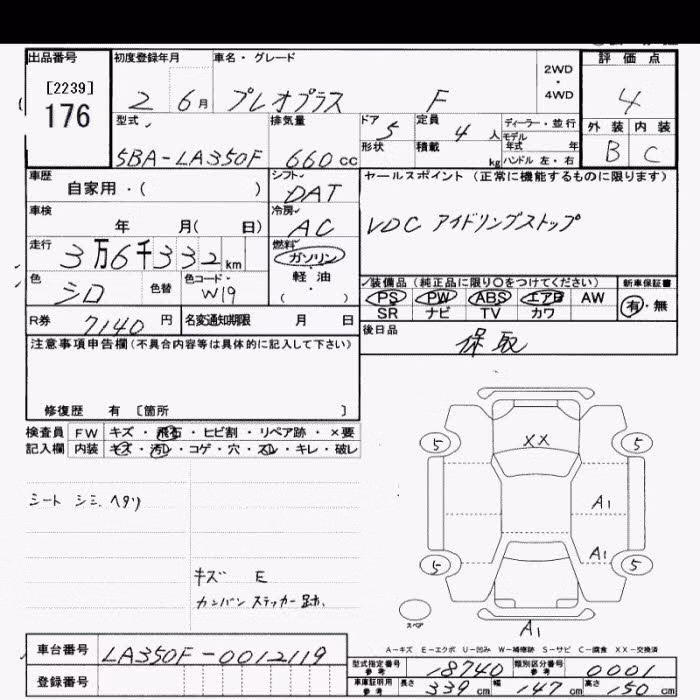 出品番号 初度登録年月 車名・グレード 評価点
[2239] 2WD
176 2 6月 プレオプラス F ・ 4
4WD
型式 排気量 ドア 5 定員 4人 ディーラー・並行 外装 内装
5BA-LA350F 660cc 形状 積載 kg モデル年式 年 B C
ハンドル 左・右
車歴 シフト セールスポイント(正常に機能するものに限ります)
自家用・( ) DAT
車検 冷房 VDC アイドリングストップ
年 月( 日) AC
走行 燃料
3万6千332km ガソリン
色 色替 色コード・ 軽油 装備品(純正品に限り○をつけてください) 新車保証書
シロ W19 ・( ) PS PW ABS エアB AW 有・無
SR ナビ TV カワ
R券 7140円 名変通知期限 月 日 後日品
保取
注意事項申告欄(不具合内容等は具体的に記入して下さい)
修復歴 有 〔箇所 〕
検査員 FW キズ・飛石・ヒビ割・リペア跡・×要
記入欄 内装 キズ・汚レ・コゲ・穴・スレ・キレ・破レ
5 XX 5
シート シミ、ヘタリ A1
A1
5 5
キズ E
カンバン ステッカー跡、
スペア
A1
A-キズ E-エクボ U-凹み W-補修跡 S-サビ C-腐食 XX-交換済
車台番号 LA350F-0012119
型式指定番号 参考 18740 類別区分番号 参考 0001
登録番号
車庫証明用 参考 長さ 339cm 幅 147cm 高さ 150cm